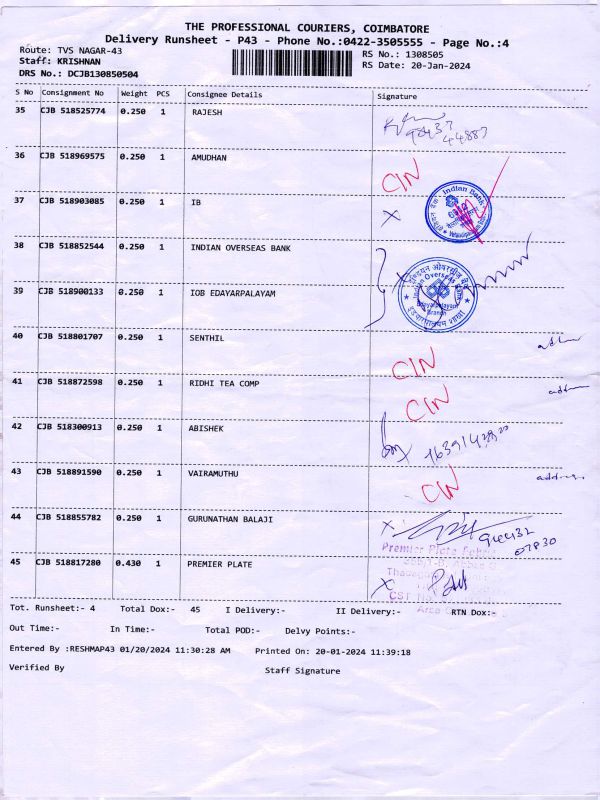 THE PROFESSIONAL COURIERS, COIMBATORE
Delivery Runsheet - P43 - Phone No.:0422-3505555 - Page No.:4
Route: TVS NAGAR-43
RS No.: 1308505
Staff: KRISHNAN
RS Date: 20-Jan-2024
DRS No.: DCJB130850504
S No Consignment No Weight PCS Consignee Details Signature
35 CJB 518525774 0.250 1 RAJESH
36 CJB 518969575 0.250 1 AMUDHAN CIN
37 CJB 518903085 0.250 1 IB
Indian Bank
38 CJB 518852544 0.250 1 INDIAN OVERSEAS BANK
Indian Overseas Bank
39 CJB 518900133 0.250 1 IOB EDAYARPALAYAM
Edayarpalayam
Branch
40 CJB 518801707 0.250 1 SENTHIL CIN
41 CJB 518872598 0.250 1 RIDHI TEA COMP CIN
42 CJB 518300913 0.250 1 ABISHEK
43 CJB 518891590 0.250 1 VAIRAMUTHU CIN
44 CJB 518855782 0.250 1 GURUNATHAN BALAJI
Premier Plate
45 CJB 518817280 0.430 1 PREMIER PLATE
CST No
Tot. Runsheet:- 4 Total Dox:- 45 I Delivery:- II Delivery:- RTN Dox:-
Out Time:- In Time:- Total POD:- Delvy Points:-
Entered By :RESHMAP43 01/20/2024 11:30:28 AM Printed On: 20-01-2024 11:39:18
Verified By Staff Signature